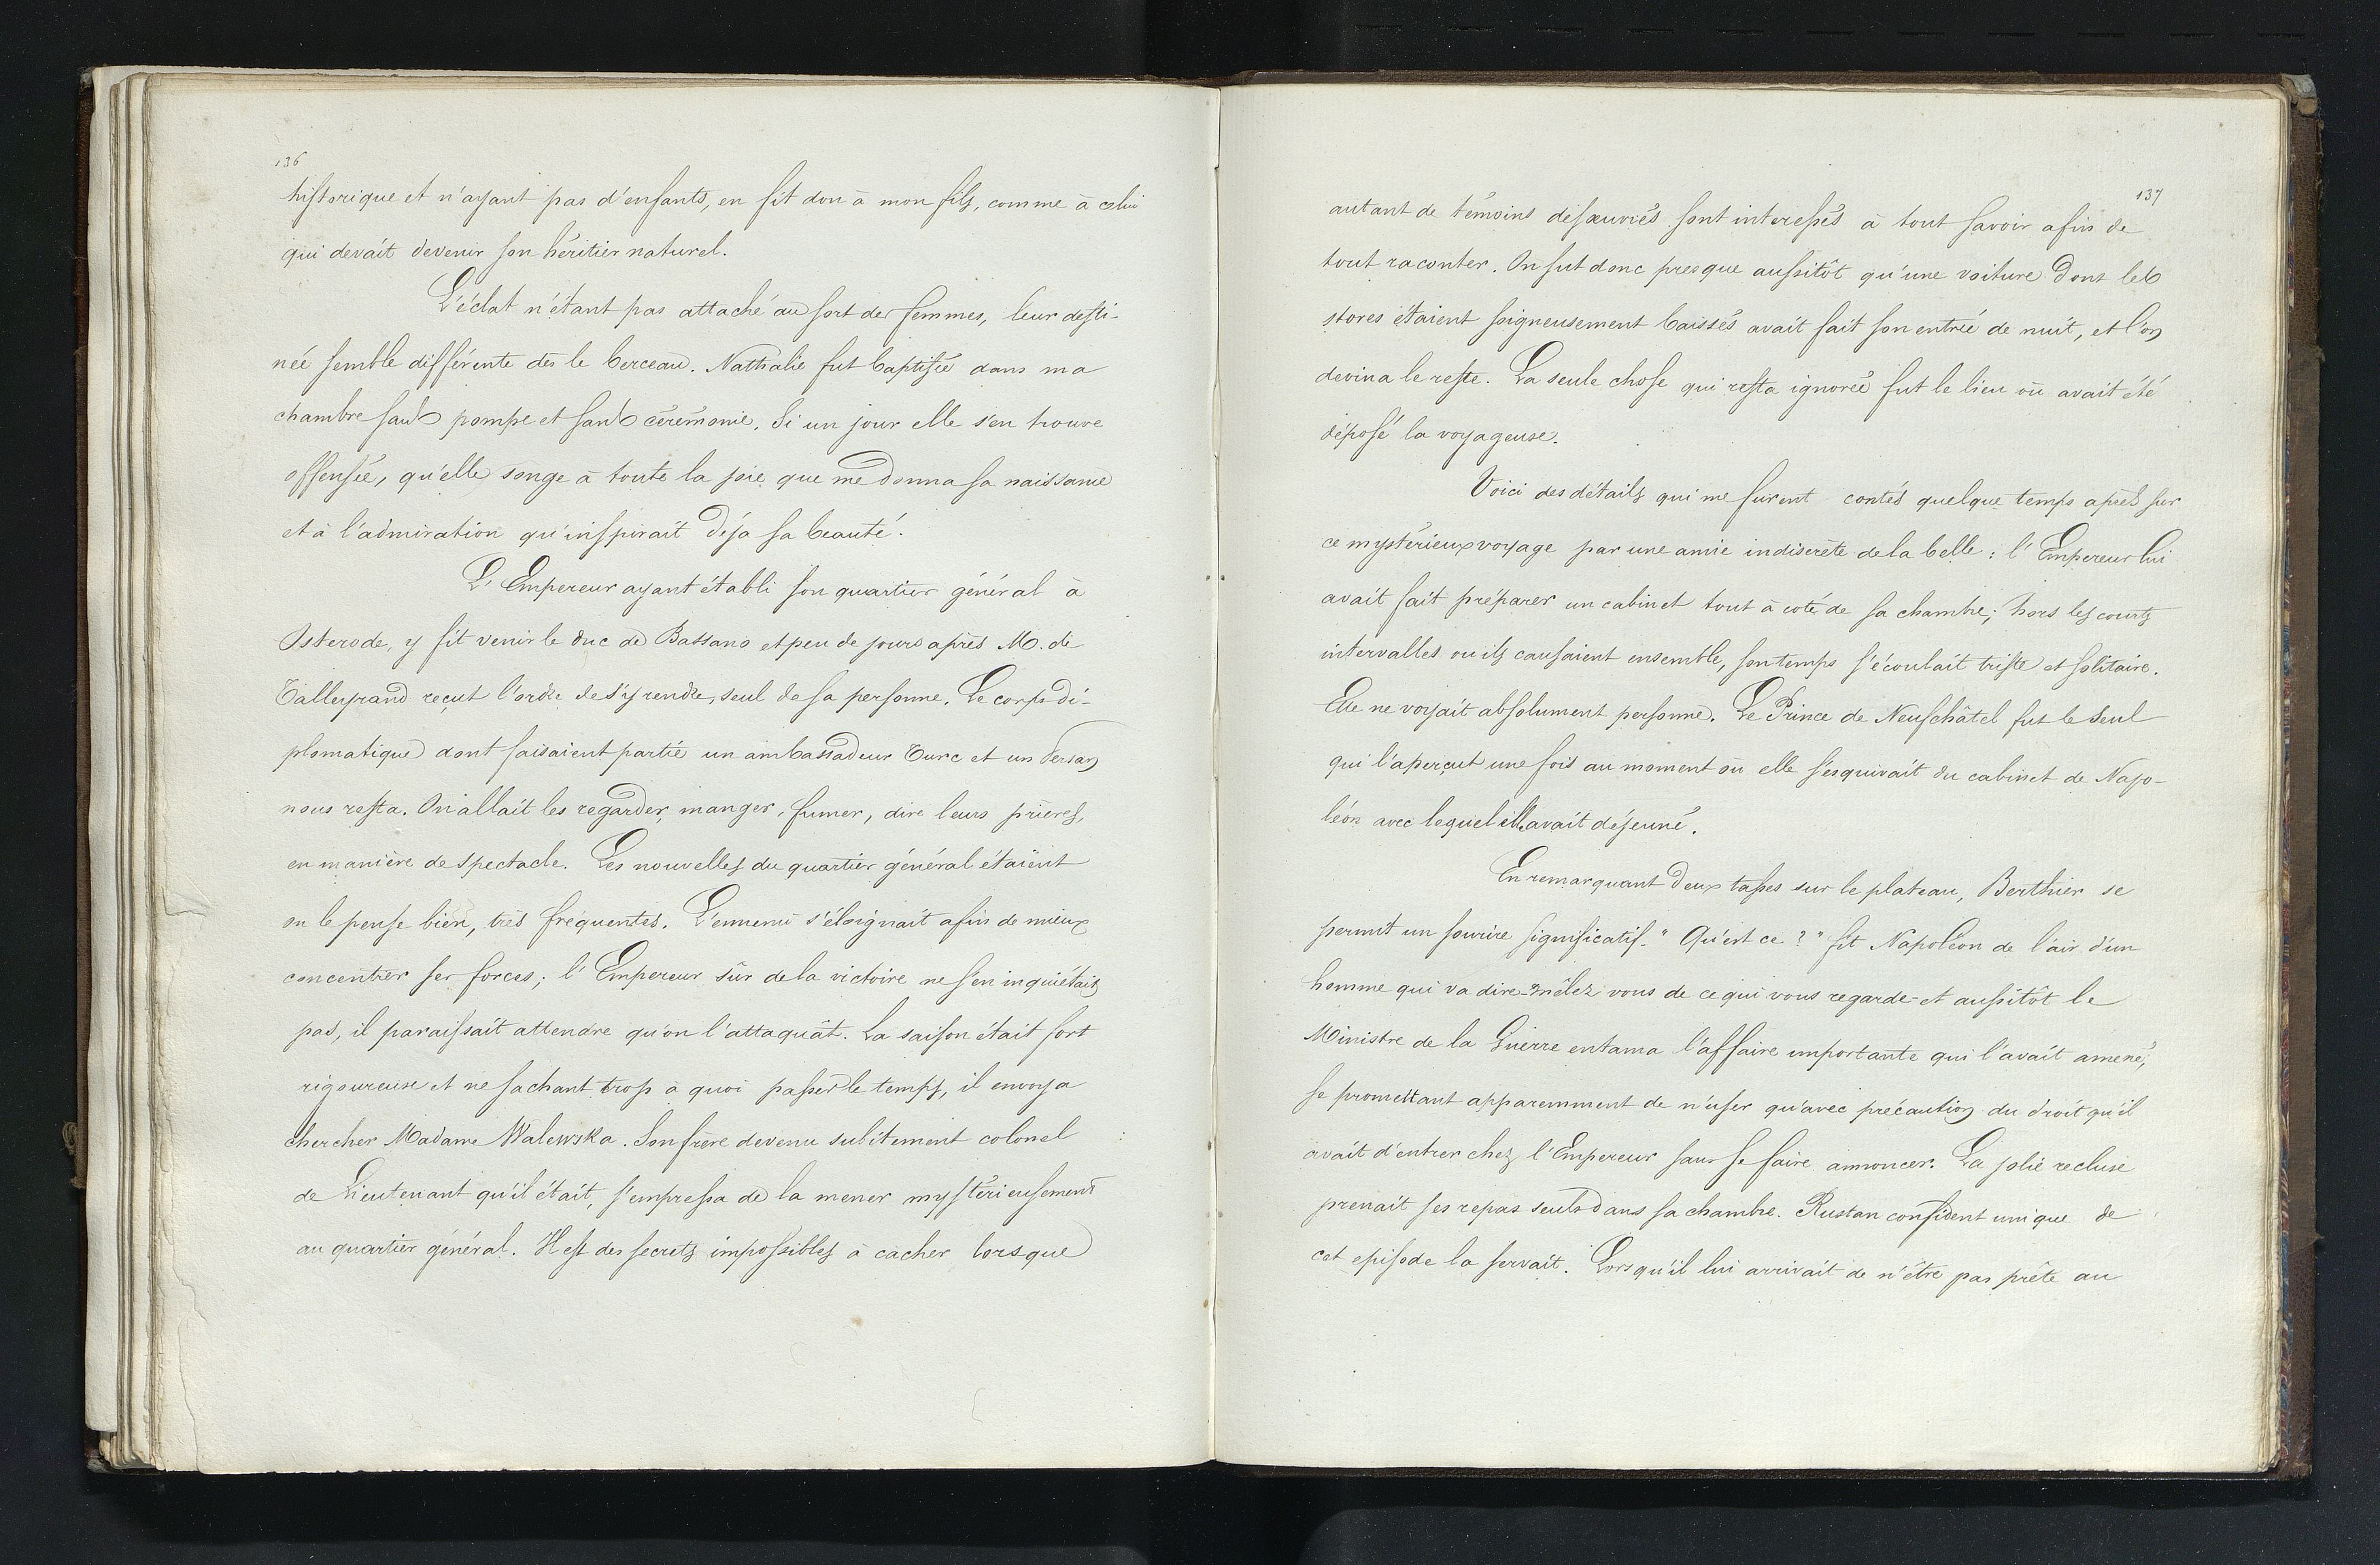 136
historique et n'ayant pas d'enfants, en fit don à mon fils, comme à celui
qui devait devenir son héritier naturel.
L'éclat n'étant pas attaché au sort des femmes, leur desti-
née semble différente dès le berceau. Nathalie fut baptisée dans ma
chambre sans pompe et sans cérémonie. Si un jour elle s'en trouve
offensée, qu'elle songe à toute la joie que me donna sa naissance
et à l'admiration qu'inspirait déja sa beauté.
L'Empereur ayant établi son quartier général à
Osterode, y fit venir le duc de Bassano et peu de jours après M. de
Talleyrand reçut l'ordre de s'y rendre, seul de sa personne. Le corps di-
plomatique dont faisaient partie un ambassadeur Turc et un Persan
nous resta. On allait les regarder manger, fumer, dire leurs prières,
en manière de spectacle. Les nouvelles du quartier général étaient
on le pense bien, très fréquentes. L'ennemi s'éloignait afin de mieux
concentrer ses forces; l'Empereur sûr de la victoire ne s'en inquiétait
pas, il paraissait attendre qu'on l'attaquât. La saison était fort
rigoureuse et ne sachant trop à quoi passer le temps, il envoya
chercher Madame Walewska. Son frère devenu subitement colonel
de Lieutenant qu'il était, s'empressa de la mener mystérieusement
au quartier général. Il est des secrets impossibles à cacher lorsque
137
autant de témoins désœuvrés sont interessés à tout savoir afin de
tout raconter. On sut donc presque aussitôt qu'une voiture dont les
stores étaient soigneusement baissés avait fait son entrée de nuit, et l'on
devina le reste. La seule chose qui resta ignorée fut le lieu où avait été
déposé la voyageuse.
Voici des détails qui me furent contés quelque temps après sur
ce mystérieux voyage par une amie indiscrète de la belle: l'Empereur lui
avait fait préparer un cabinet tout à coté de sa chambre; hors les courts
intervalles ou ils causaient ensemble, son temps s'écoulait triste et solitaire.
Elle ne voyait absolument personne. Le Prince de Neufchâtel fut le seul
qui l'aperçut une fois au moment où elle s'esquivait du cabinet de Napo-
léon avec lequel elle avait déjeuné.
En remarquant deux tasses sur le plateau, Berthier se
permit un sourire significatif. "Qu'est ce?" fit Napoléon de l'air d'un
homme qui va dire - mêlez vous de ce qui vous regarde - et aussitôt le
Ministre de la Guerre entama l'affaire importante qui l'avait amené,
se promettant apparemment de n'user qu'avec précaution du droit qu'il
avait d'entrer chez l'Empereur sans se faire annoncer. La jolie recluse
prenait ses repas seule dans sa chambre. Rustan confident unique de
cet episode la servait. Lorsqu'il lui arrivait de n'être pas prête au